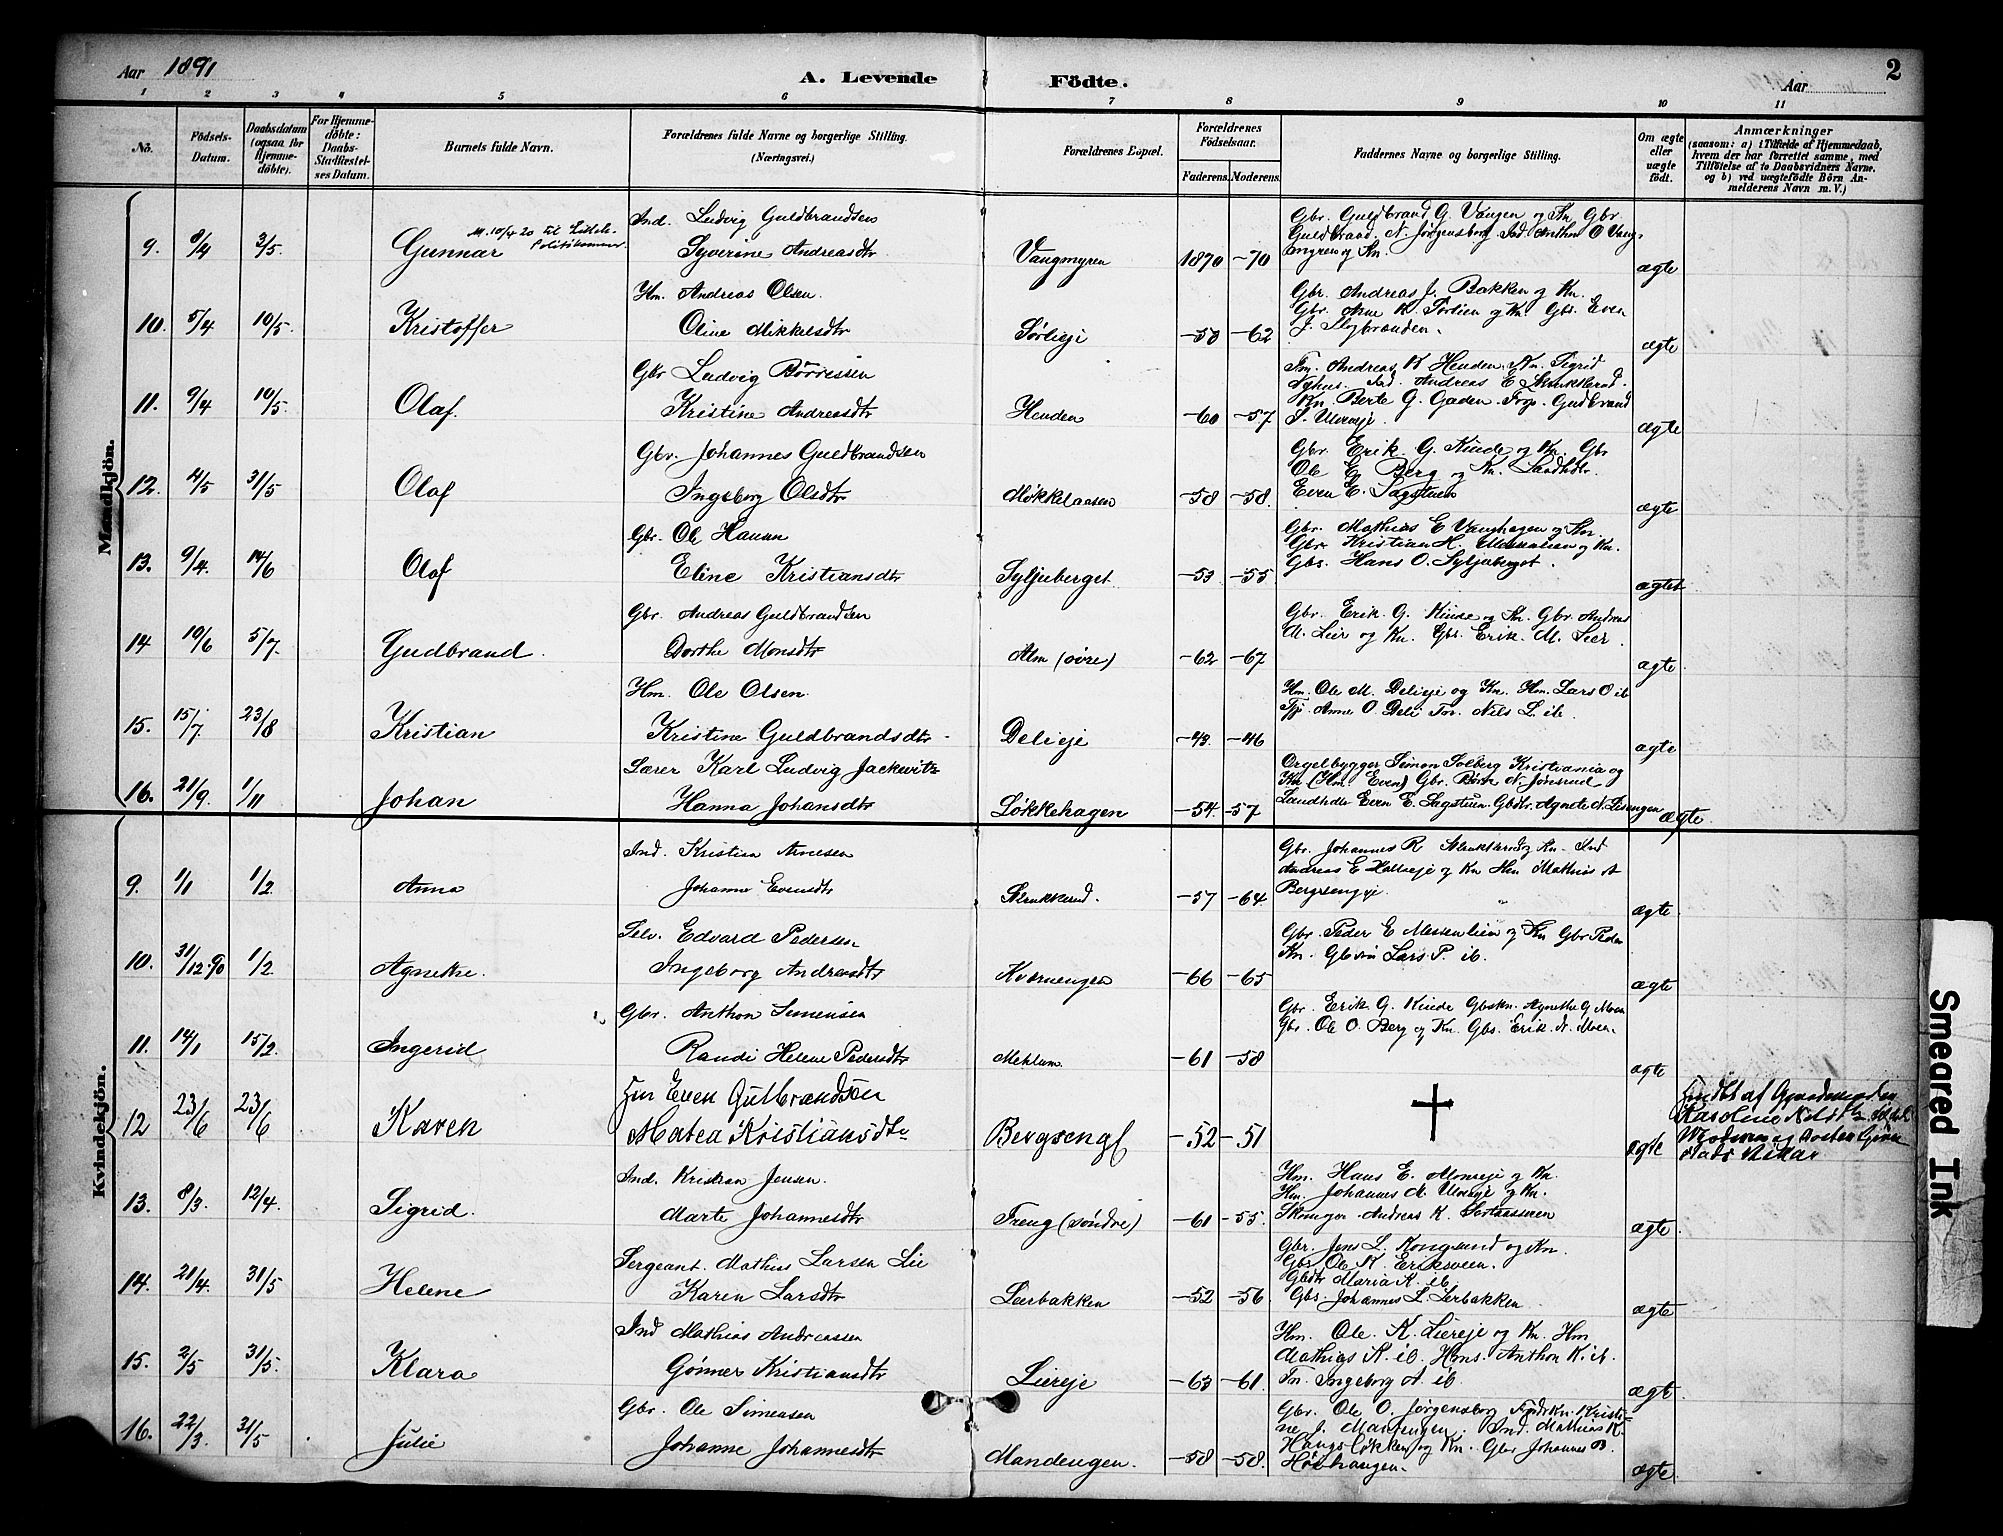 Aar 1891
A. Levende Födte.
Aar
2
1 2 3 4 5 6 7 8 9 10 11
No.
Födsels-Datum.
Daabsdatum (ogsaa for Hjemmedöbte).
For Hjemmedöbte: Daabs-Stadfæstelses Datum.
Barnets fulde Navn.
Forældrenes fulde Navne og borgerlige Stilling. (Næringsvei.)
Forældrenes Bopæl.
Forældrenes Födselsaar.
Faderens. Moderens.
Faddernes Navne og borgerlige Stilling.
Om ægte eller uægte födt.
Anmærkninger
(saasom: a) i Tilfælde af Hjemmedaab, hvem der har forrettet samme, med Tilföielse af to Daabsvidners Navne. og b) ved uægtefödte Börn Anmelderens Navn m. V.)
Mandkjön.
Ind. Ludvig Guldbrandsen
Gbr. Guldbrand G. Vangen og Kn. Gbr.
M. 10/4 20 til
Guldbrand N. Jørgensborg Ind. Anthon O Vang-
9. 8/4 3/5 Gunnar Syverine Andreasdtr Vangmyren 1870 -70 myren og Kn. ægte
Hm. Andreas Olsen.
Gbr. Andreas J. Bakken og Kn.
Gbr. Arne K. Sørlien og Kn. Gbs. Even
10. 5/4 10/5 Kristoffer Oline Mikkelsdtr Sørlieje -58 -62 ægte
Gbr Ludvig Børresen
Andreas K Henden Kn. Sigrid
Nyhus. Ind. Andreas E
11. 9/4 10/5. Olaf. Kristine Andreasdtr Henden -60 -57 Berte G. Gaden Gudbrand ægte
Gbr. Johannes Guldbrandsen
Gbr. Erik. G. Kinde og Kn. Gbr
Ole E. Berg og Kn. Landhdlr.
12. 4/5 31/5 Olaf Ingeborg Olsdtr Møkkelaasen -58 -58. Even E. Sagstuen ægte
Gbr. Ole Hansen
Gbr. Mathias E Vanghagen og Kn.
Gbr. Kristian H. Messenlien og Kn.
13. 9/4. 14/6 Olaf Eline Kristiansdtr Syljuberget -53 -55 Gbs. Hans O. Syljuberget. ægte
Gbr. Andreas Guldbrandsen
Gbr. Erik G. Kinde og Kn. Gbr. Andreas
M. Lier og Kn. Gbs. Erik. M. Lier.
14 10/6 5/7 Gudbrand. Dorthe Monsdtr Alm (øvre) -62 -67 ægte
Hm. Ole Olsen
Hm. Ole M. Delieje og Kn. Hm. Lars O ib
Tjp. Anne O. Deli Nils L. ib.
15. 15/7 23/8 Kristian Kristine Guldbrandsdtr Delieje -43. -46 ægte
Lærer Karl Ludvig Jackwitz
Orgelbygger Simon Solberg Kristiania og
Kn (Hm. Even) Gbr. Børre N. Jønsrud
16. 21/9. 1/11 Johan Hanna Johansdtr Løkkehagen -54. -57 Landhdlr Even E. Sagstuen. Gbdtr. Agnete N. ægte
Kvindekjön.
Ind. Kristian Arnesen
Gbr. Johannes R. og Kn. Ind
Andreas E Hollieje og Kn Hm. Mathias A
9. 1/1 1/2. Anna Johanne Evensdtr -57 -64. Bergsengeje ægte
Selv. Edvard Pedersen
Gbr. Peder E Messenlien og Kn Gbr Peder
Kn. Gbsøn Lars P. ib.
10. 31/12.90 1/2 Agnethe. Ingeborg Andreasdtr Kværnengen -66 -65 ægte
Gbr. Anthon Simensen
Gbr. Erik. G. Kinde Gbskn. Agnethe G Moen
Gbr. Ole O. Berg og Kn. Gbs. Erik N. Moen.
11. 14/1 15/2. Ingerid Randi Helene Pedersdtr Mehlum -61 -58 ægte
Hm Even Gulbrandsen
12 23/6 23/6 Karen Matea Kristiansdtr Bergsengf -52 -51 ægte
Karoline
Moderen og Søster
Ind. Kristian Jensen
Hm. Hans E. Almeje og Kn.
Hm. Johannes M. Ulvereje og Kn.
13. 8/3. 12/4. Sigrid. Marte Johannesdtr Freng (søndre) -61 -55. Andreas K. ægte
Sergeant. Mathias Larsen Lie
Gbr. Jens L. Kongslund og Kn.
Gbs Ole K. Eriksveen.
Gbdtr Maria K. ib.
14. 21/4. 31/5 Helene Karen Larsdtr Lerbakken -52 -56. Gbs. Johannes L. Lerbakken ægte
Ind Mathias Andreassen
Hm. Ole. K. Liereje og Kn. Hm
Mathias K. ib. Hans. Anthon K. ib.
15. 2/5 31/5. Klara Gønner Kristiansdtr Liereje -63 -61. Ingeborg A. ib. ægte
Gbr. Ole Simensen
Gbr. Ole O. Jørgensborg Kristi-
ne J. Mandengen. Ind. Mathias K
Haugsløkken og Kn. Gbr Johannes B.
16. 22/3. 31/5 Julie Johanne Johannesdtr Mandengen. -58 -58. Høihaugen. ægte
Smeared Ink